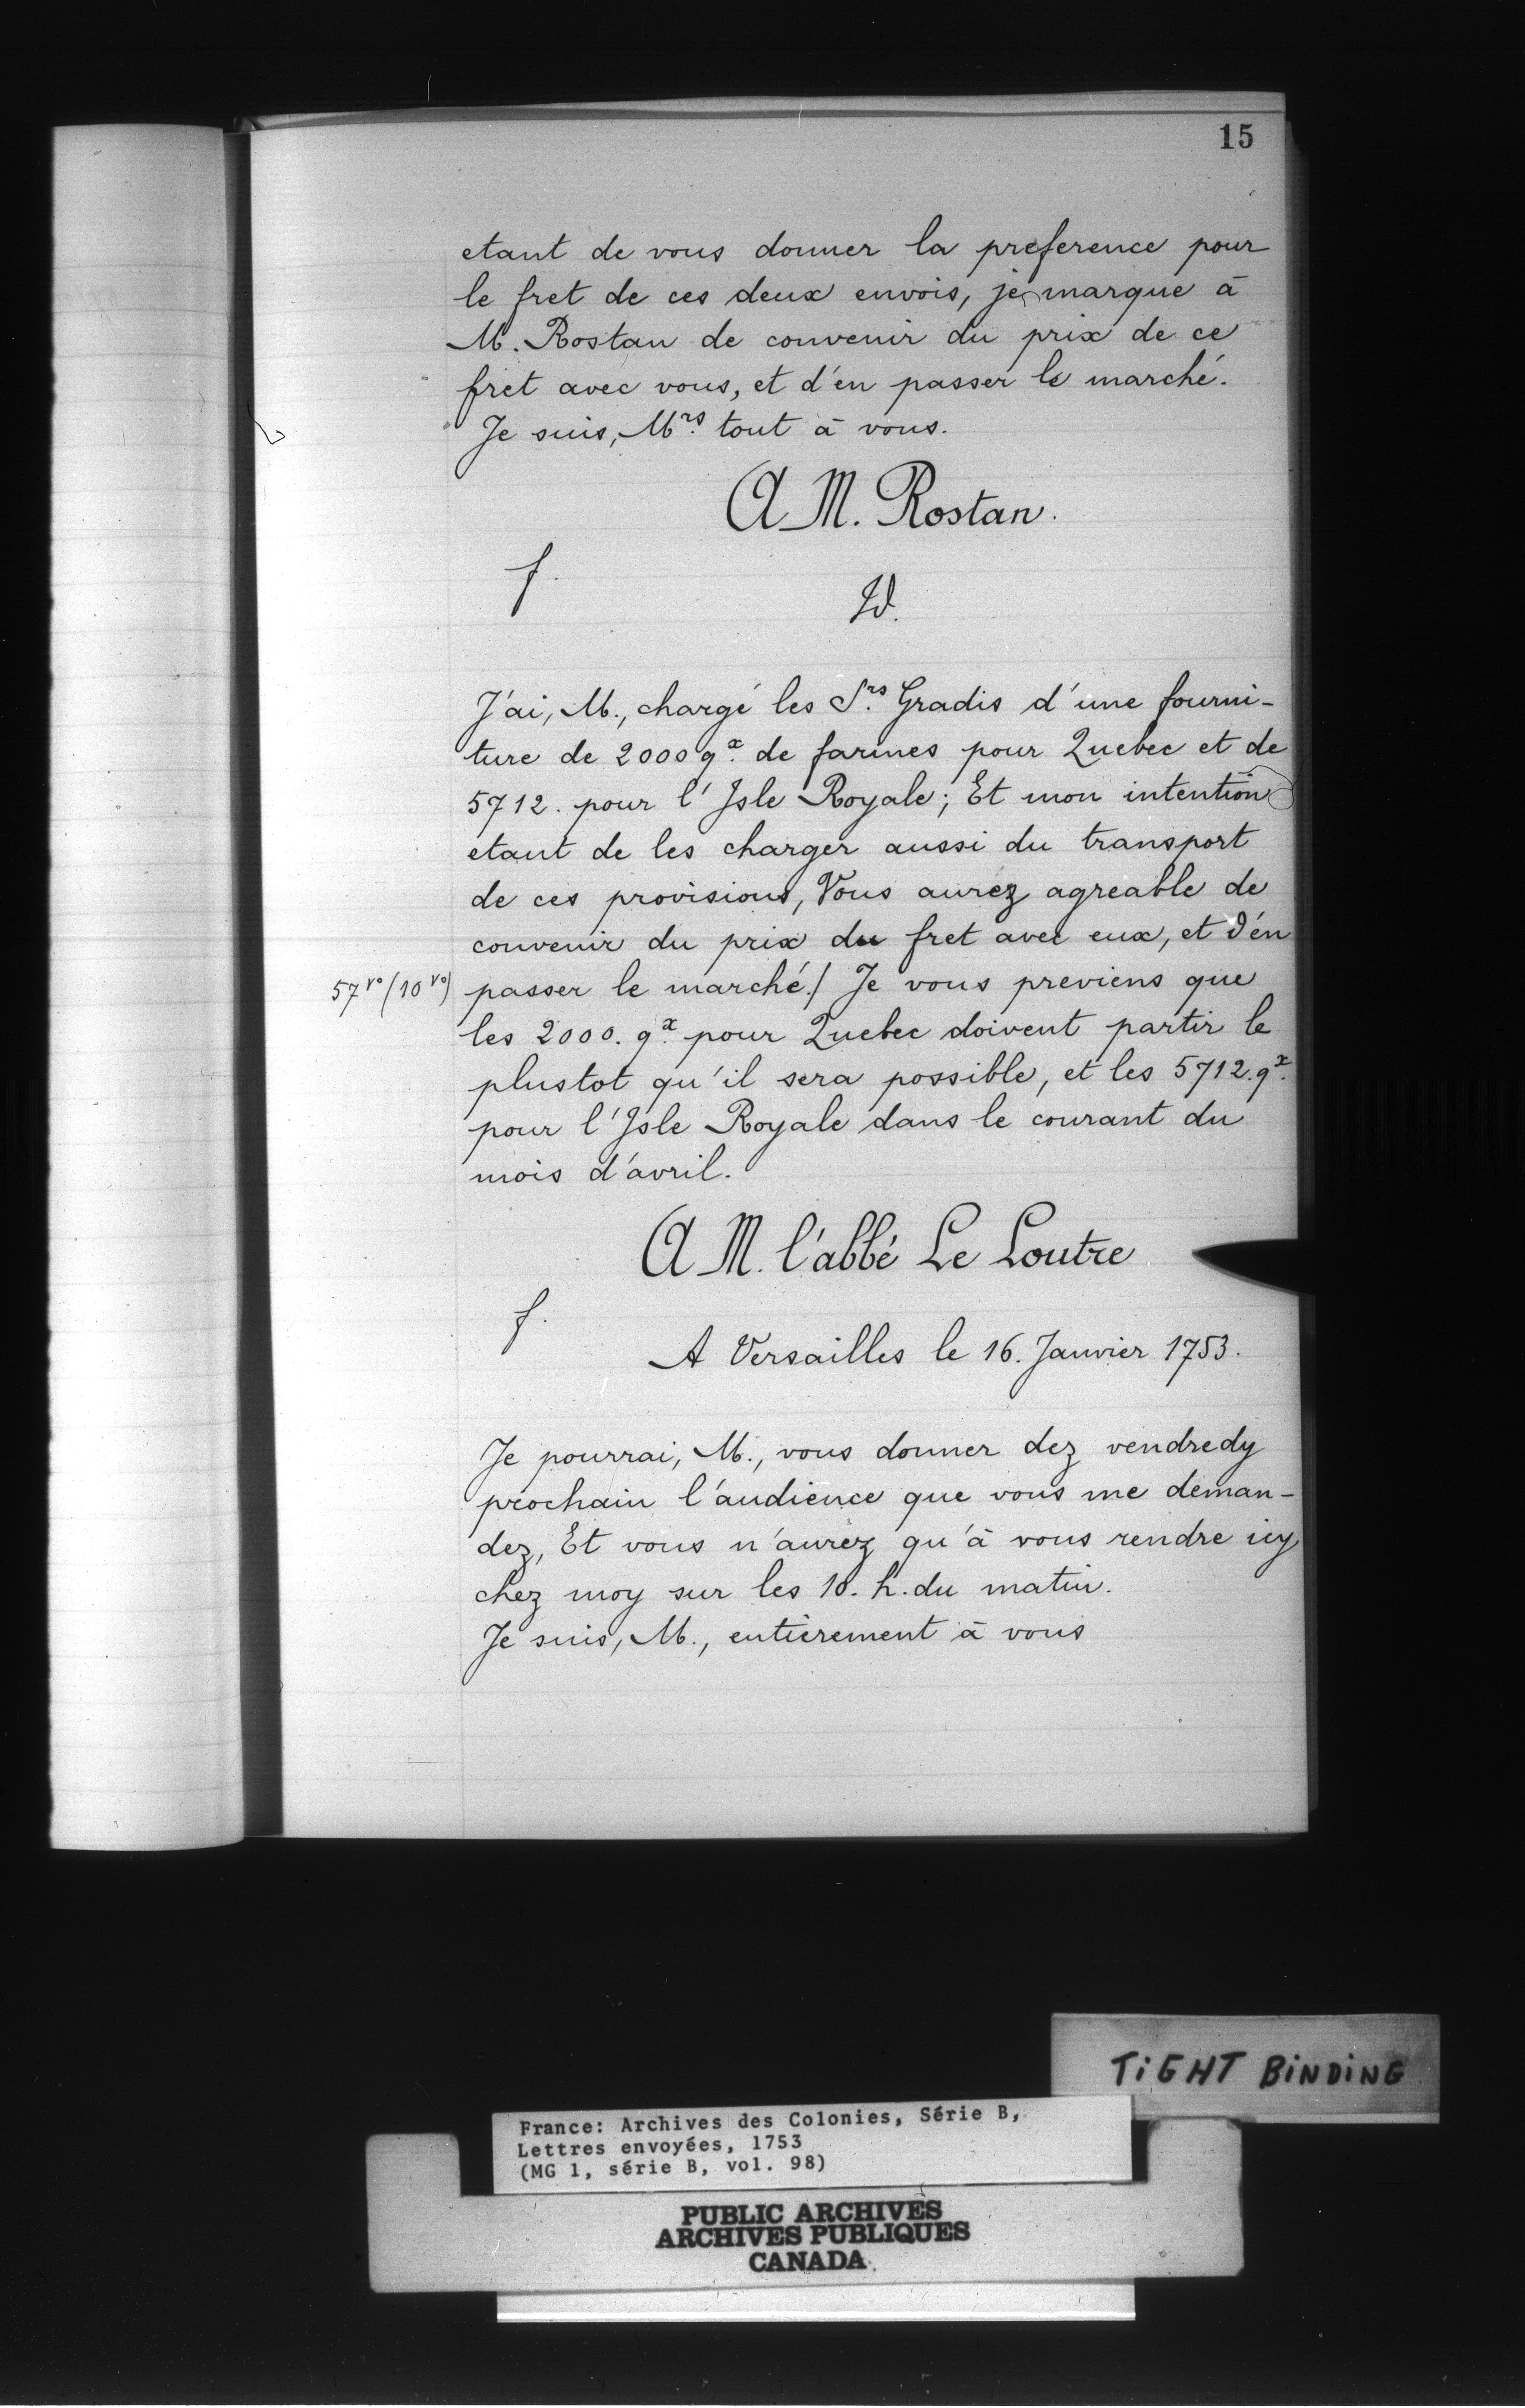 15
etant de vous donner la preference pour
le fret de ces deux envois, je marque à
M. Rostan de convenir du prix de ce
fret avec vous, et d'en passer le marché.
Je suis, Mrs. tout à vous.
A M. Rostan.
f.
Id.
J'ai, M., chargé les Srs. Gradis d'une fourni-
ture de 2000 qx. de farines pour Quebec et de
5712. pour l'Isle Royale; Et mon intention
etant de les charger aussi du transport
de ces provisions, Vous aurez agreable de
convenir du prix du fret avec eux, et d'en
57 vo (10 vo) passer le marché./ Je vous previens que
les 2000. qx. pour Quebec doivent partir le
plustot qu'il sera possible, et les 5712. qx.
pour l'Isle Royale dans le courant du
mois d'avril.
A M. l'abbé Le Loutre
f.
A Versailles le 16. Janvier 1753.
Je pourrai, M., vous donner dez vendredy
prochain l'audience que vous me deman-
dez, Et vous n'aurez qu'à vous rendre icy
chez moy sur les 10. h. du matin.
Je suis, M., entièrement à vous
TIGHT BINDING
France: Archives des Colonies, Série B,
Lettres envoyées, 1753
(MG 1, série B, vol. 98)
PUBLIC ARCHIVES
ARCHIVES PUBLIQUES
CANADA